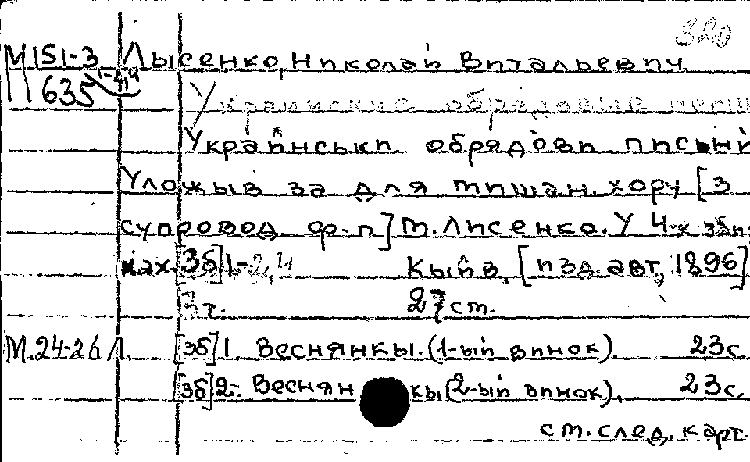 320
М 151-3 Лысенко, Николай Витальевич
635
Украинские обрядовые песн
Українськи обрядови письни
Уложыв за для мишан. хору [з
супровод. ф-п] М. Лисенко. У 4-х збп
ках. [Зб] 1-2, 4 Кыйв, [изд. авт, 1896]
3 т. 27 см.
М.24-26 Л. [Зб] 1. Веснянкы. (1-ый винок). 23 с.
[Зб] 2. Веснянкы (2-ый винок). 23 с.
см. след. карт.